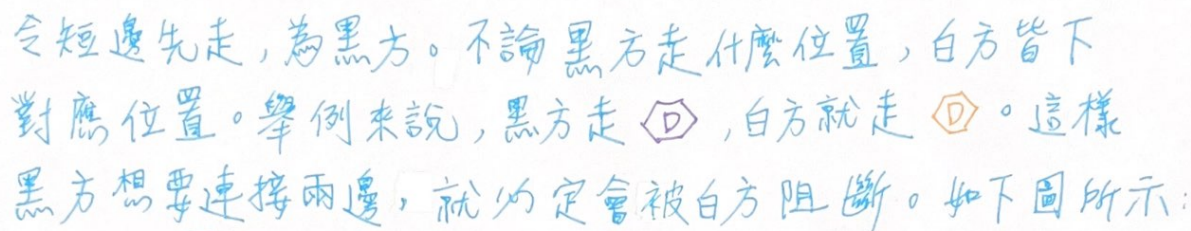 令短邊先走,為黑方。不論黑方走什麼位置,白方皆下
對應位置。舉例來說,黑方走 D ,白方就走 D 。這樣
黑方想要連接兩邊,就必定會被白方阻斷。如下圖所示: